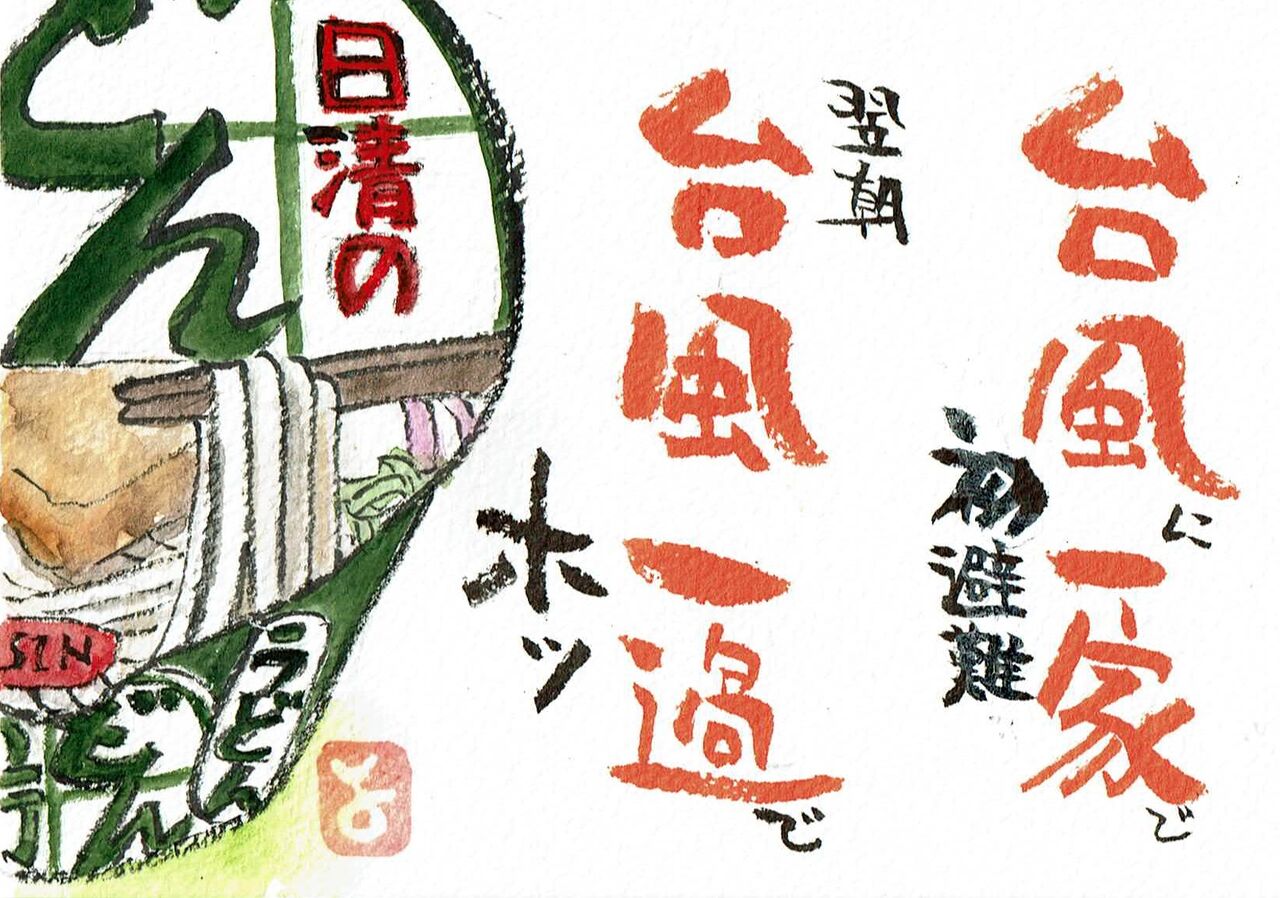 台風に一家で
初避難
翌朝
台風一過で
ホッ
日清の
どん
うどん
どん
SIN